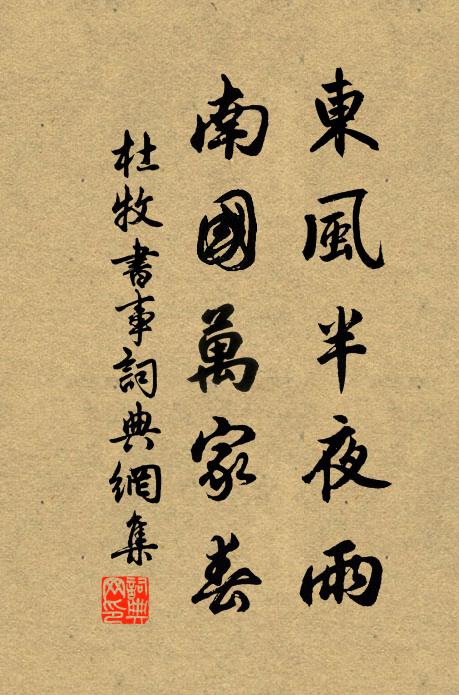 東風半夜雨
南國萬家春
杜牧書事詞典網集
詞典网印